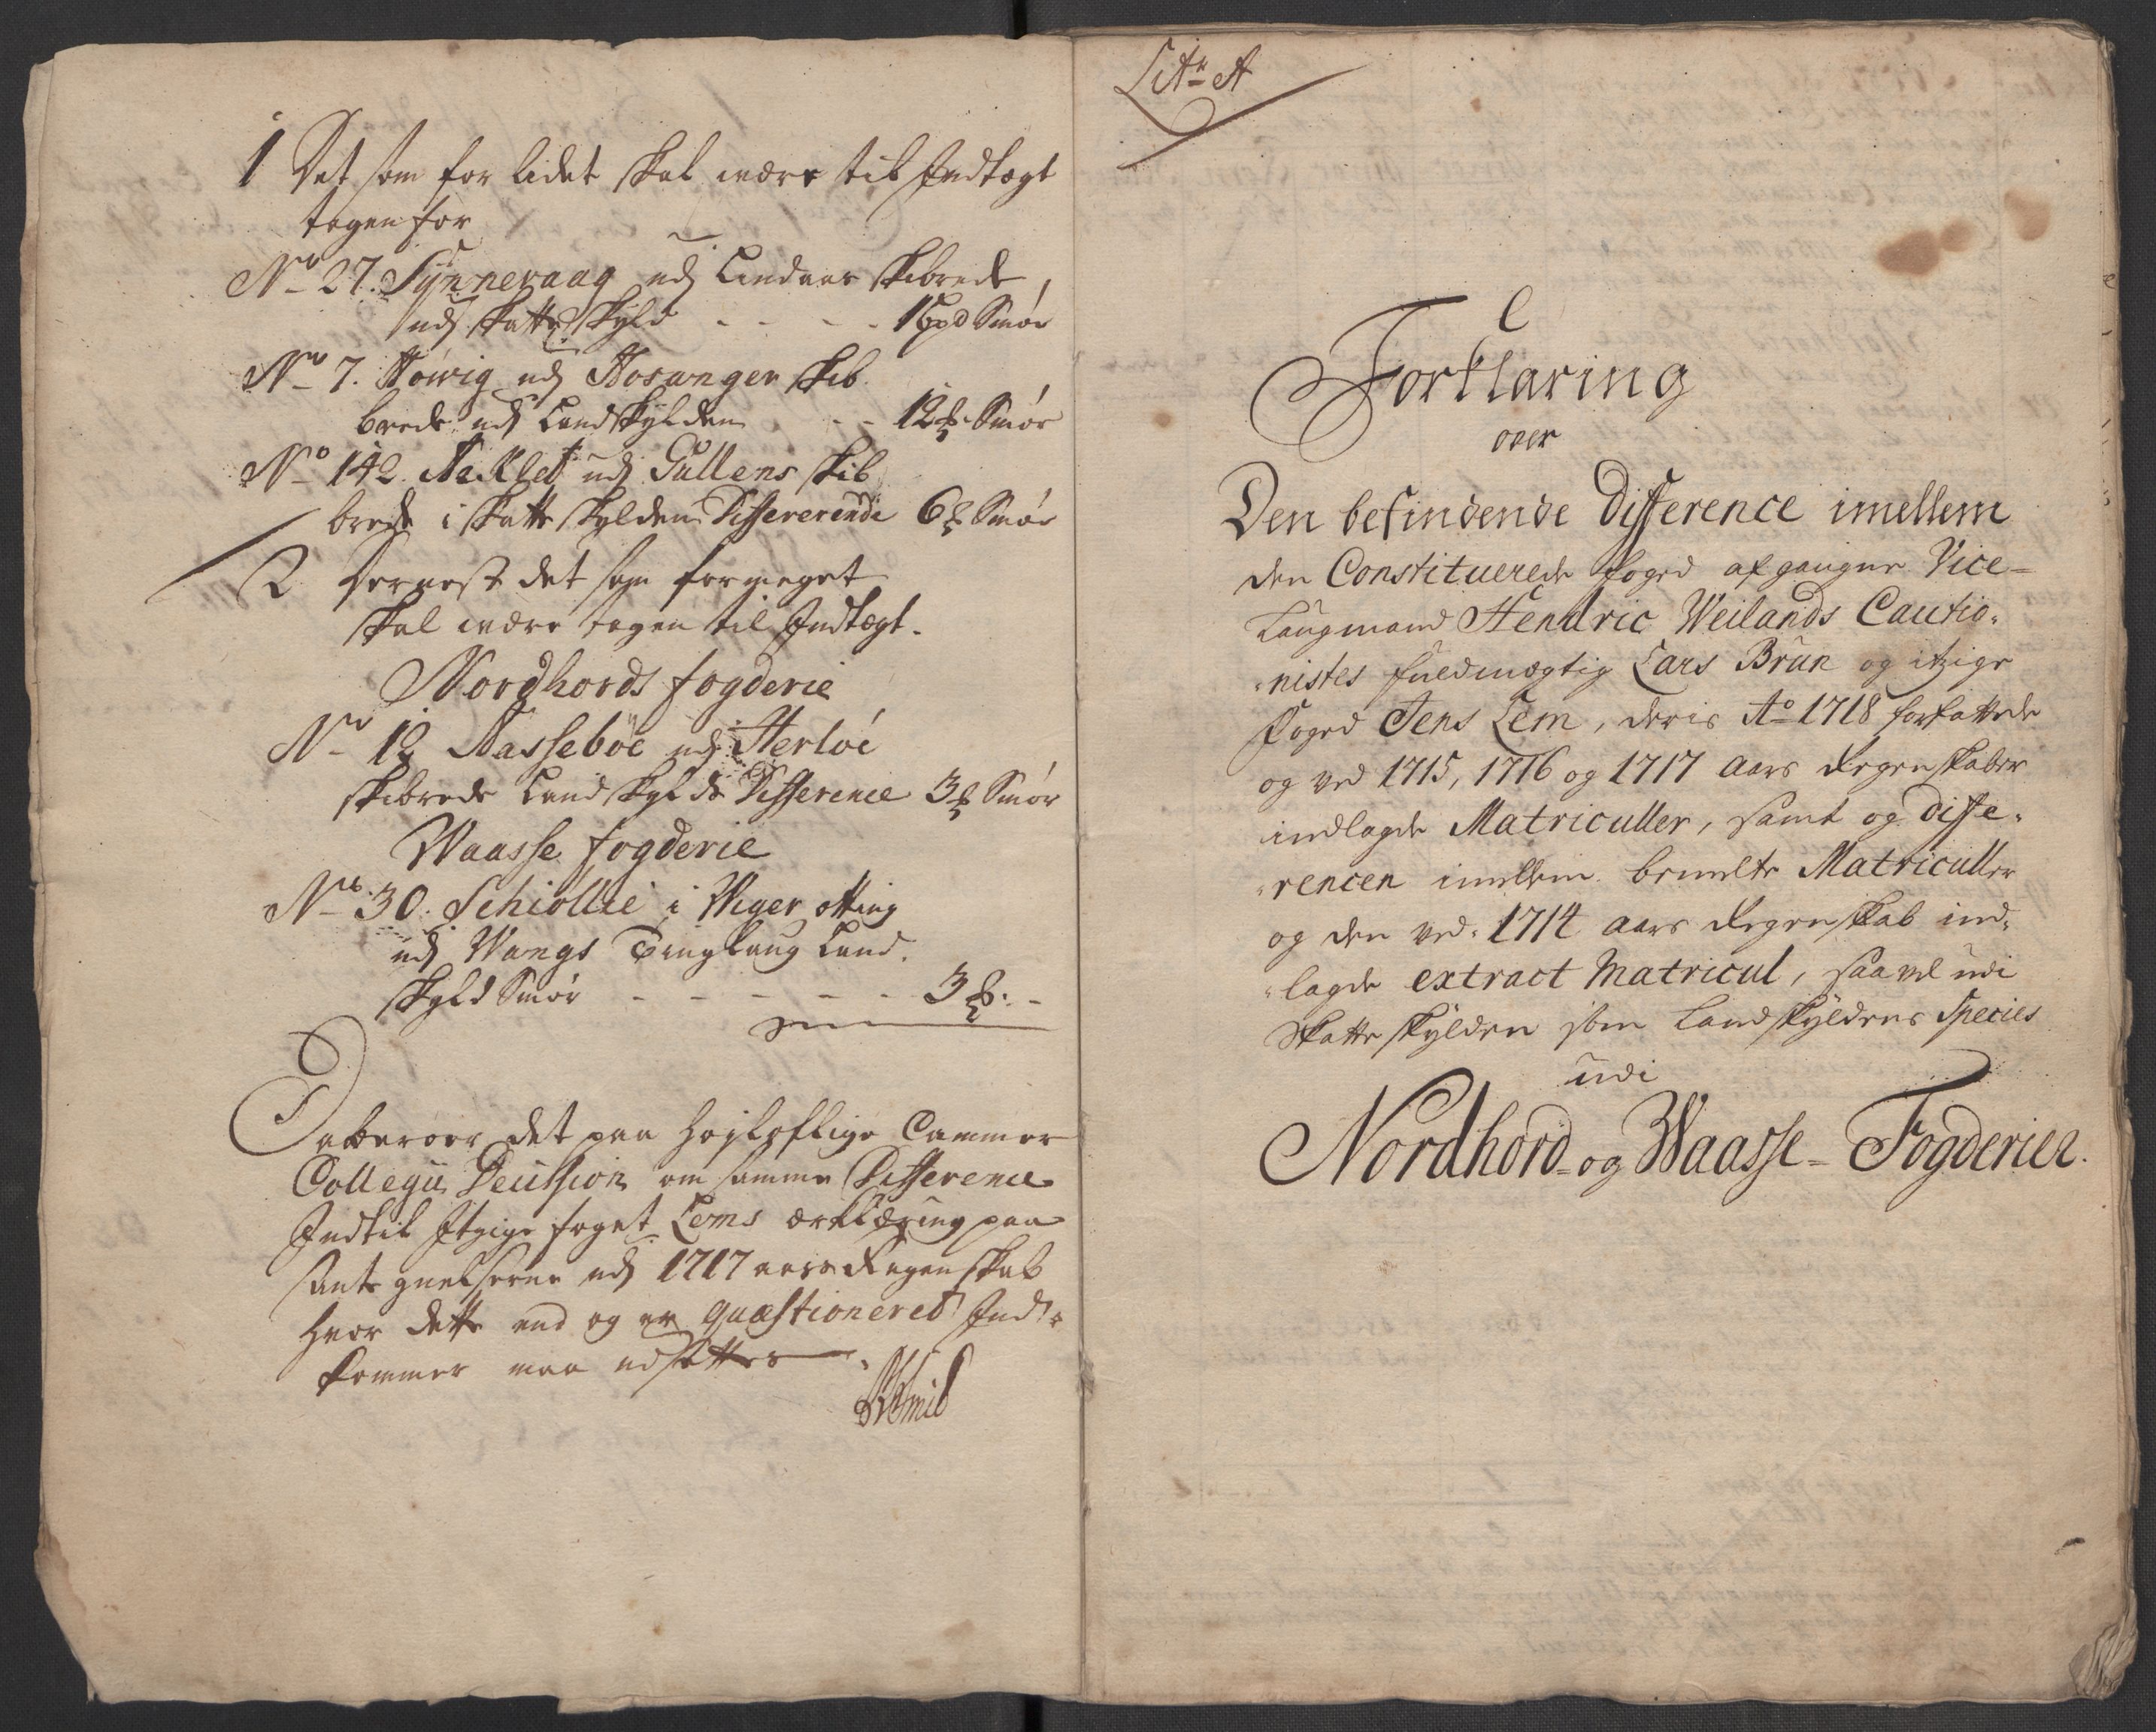 1 Det som for lidet skal være til Indtægt
tagen for
No 27. Synnevaag udj Lindaas skibrede,
udj skatte skyld - - - - 1 Bpd Smør
No 7. Høwig udj Hosanger skib
brede udj Landskylden - - 12 ℔ Smør
No 142. Nekløt udj Gullens skib
brede i skatte skylden Differerende 6 ℔ Smør
2 Dernest det som formeget
skal være tagen til Indtægt.
Nordhords fogderie
No 12 Nassebøe udj Herløe
skibrede Landskylds Difference 3 ℔ Smør
Waasse fogderie
No 30. Schiollie i Wiger otting
udj Wangs Tinglaug Land.
skyld Smør - - - - - 3 ℔: -
Saa beroer det paa høyloflige Cammer
Collegii Decission om samme Difference
Indtil Itzige foget Lems erklæring paa
Antegnelserne udj 1717 aars Regenskab
hvor dette end og er quæstioneret Ind-
kommer maa udsættes.
Litr A
Forklaring
over
Den befindende Difference imellem
den Constituerede foged afgangne Vice-
Laugmand Hendric Weilands Cautio-
nistes fuldmægtig Lars Brun og itzige
Foged Jens Lem, deris Ao 1718 forfattede
og ved 1715, 1716 og 1717 Aars Regenskaber
indlagde Matriculler, samt og diffe-
rencen imellem bemelte Matriculler
og den ved 1714 Aars Regenskab ind-
lagde extract Matricul, saavel udi
Skatteskylden som Landskyldens Species
udi
Nordhord- og Waasse- Fogderier.